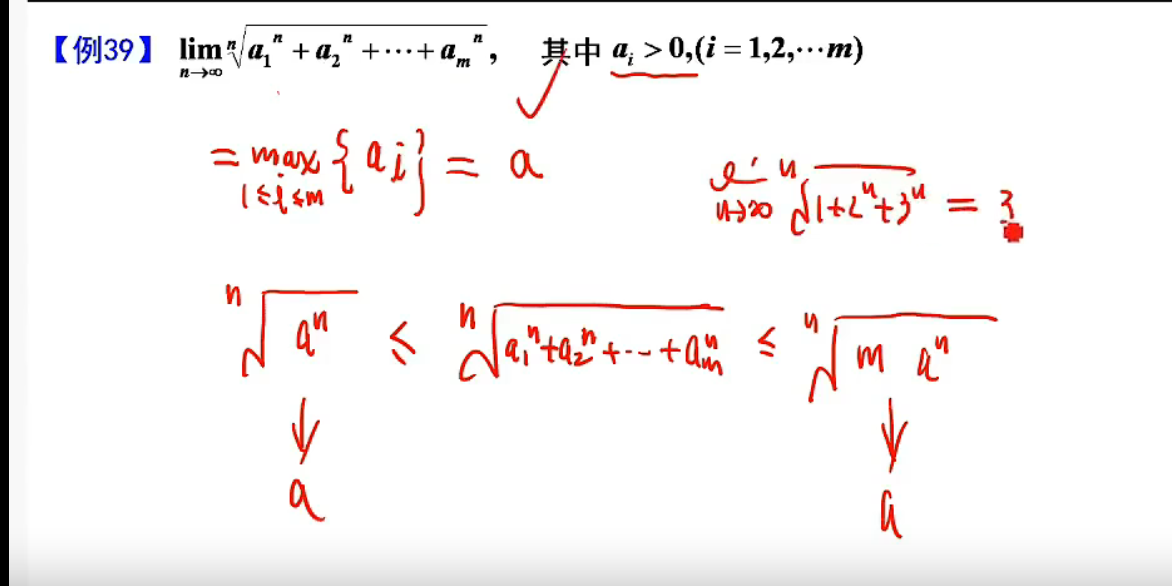 【例39】 lim n→∞ ⁿ√(a₁ⁿ + a₂ⁿ + ⋯ + aₘⁿ), 其中 aᵢ > 0,(i = 1,2,⋯m)
= max 1≤i≤m {ai} = a
n→∞ ⁿ√(1+2ⁿ+3ⁿ) = 3
ⁿ√(aⁿ) ≤ ⁿ√(a₁ⁿ+a₂ⁿ+⋯+aₘⁿ) ≤ ⁿ√(m aⁿ)
↓ ↓
a a